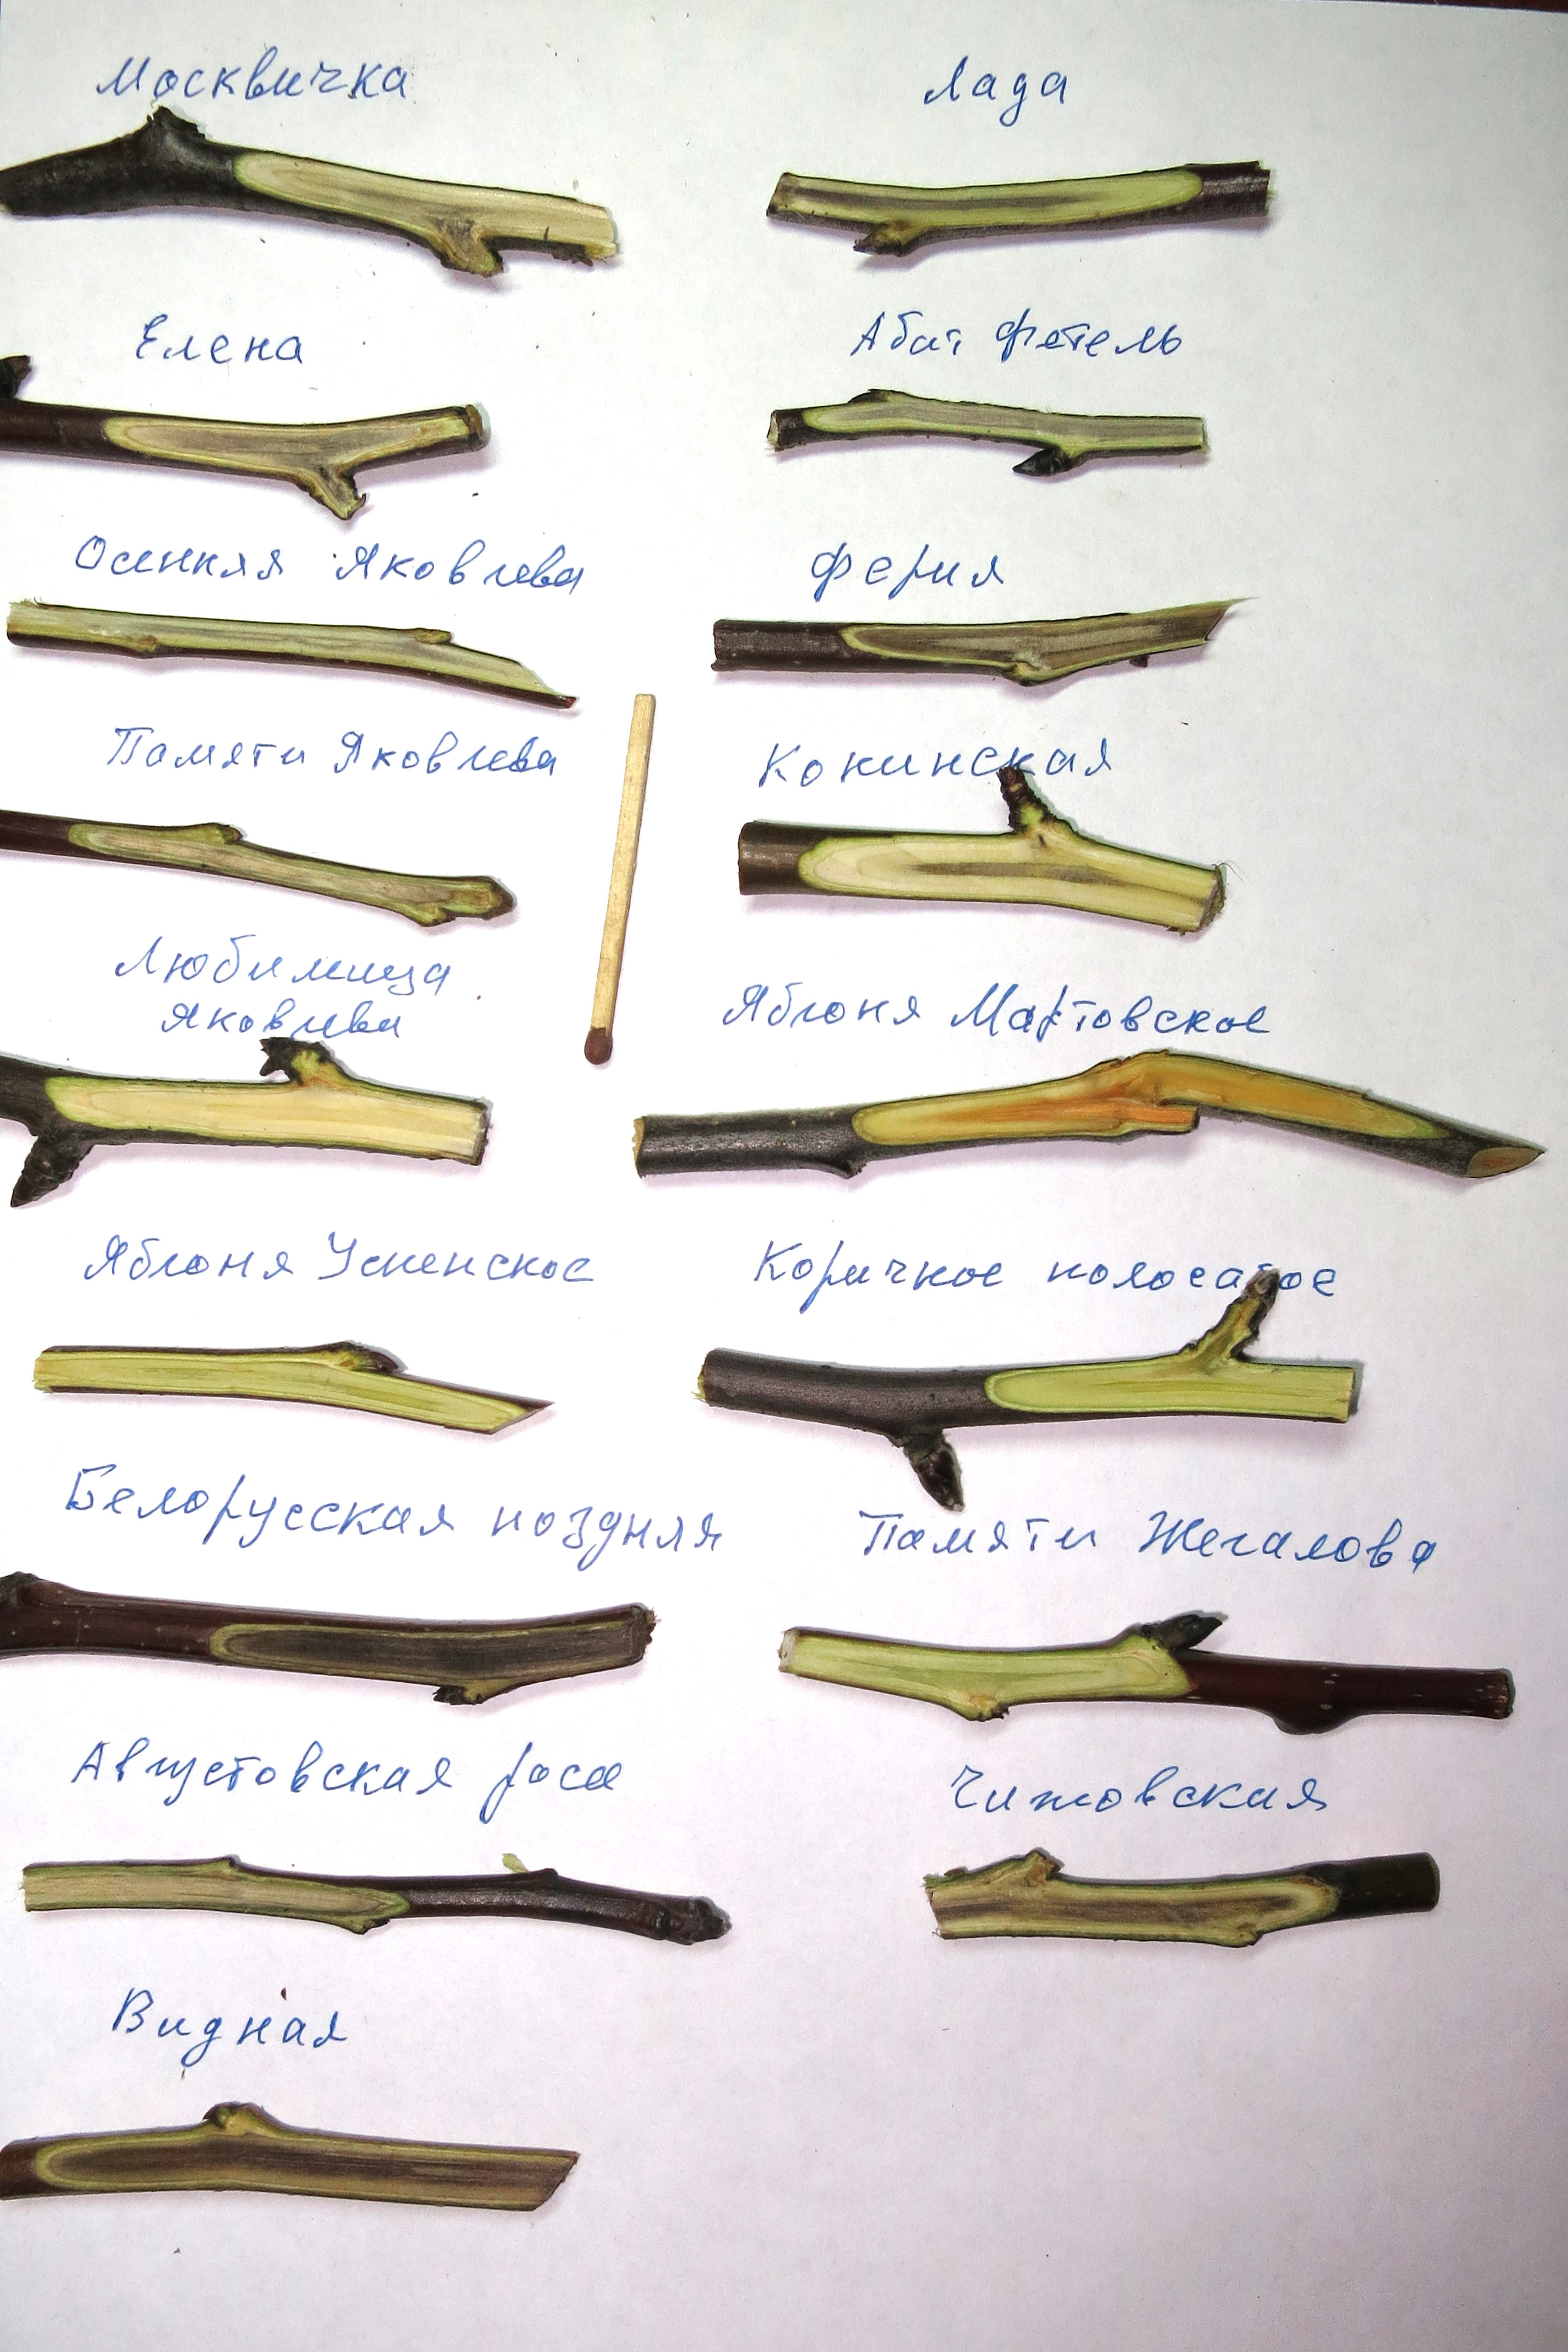 Москвичка
Лада
Елена
Абат Фетель
Осенняя Яковлева
Ферия
Памяти Яковлева
Кокинская
Любимица
Яковлева
Яблоня Мартовское
Яблоня Успенское
Коричное полосатое
Белорусская поздняя
Памяти Жегалова
Августовская роса
Чижовская
Видная